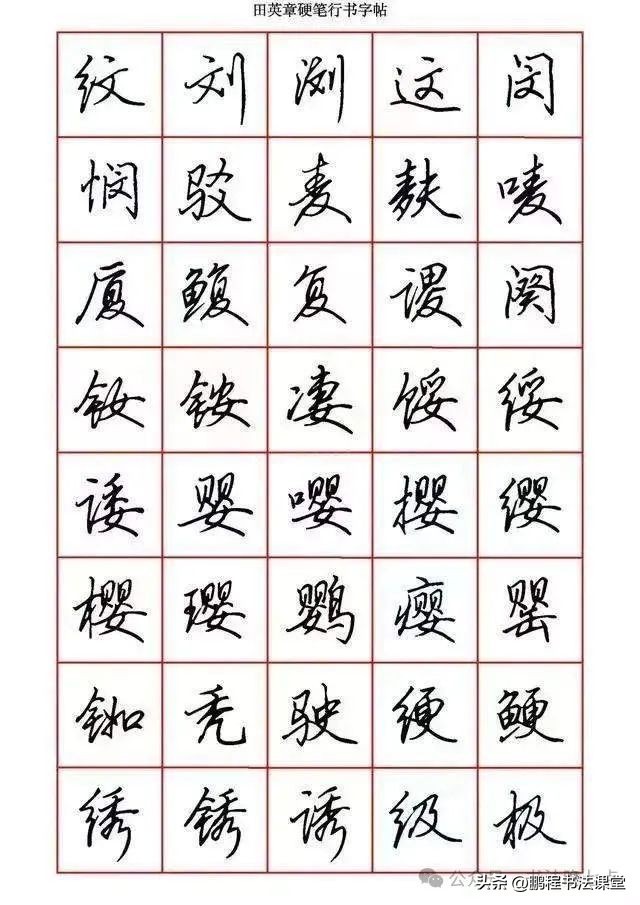 田英章硬笔行书字帖
纹刘浏这闵
悯驳麦麸唛
厦鳆复谡阕
钕铵凄馁绥
诿婴嘤撄缨
樱璎鹦瘿罂
铷秃驶绠鲠
绣锈诱级极
公众号
头条@鹏程书法课堂